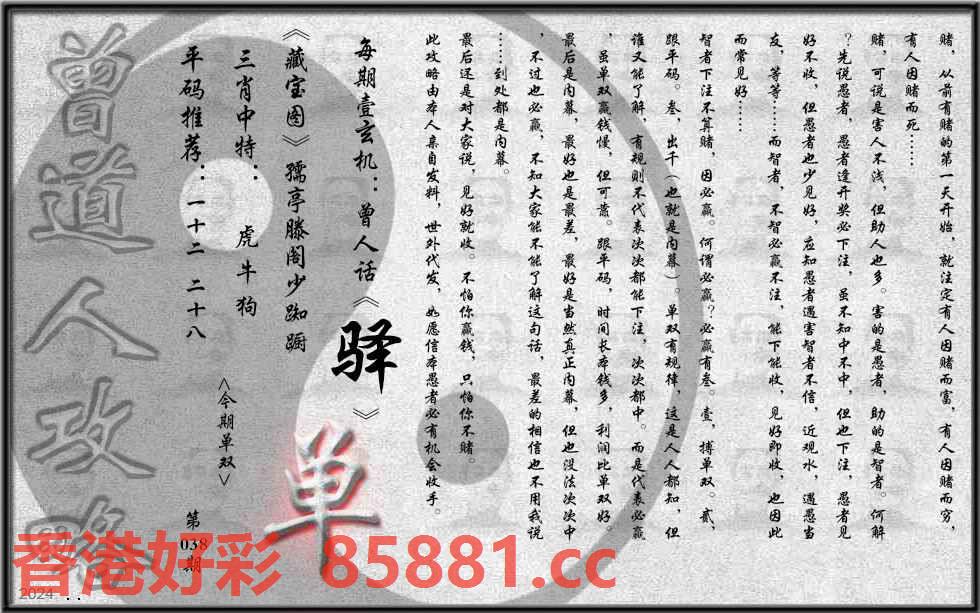 赌，从前有赌的第一天开始，就注定有人因赌而富，有人因赌而穷，
有人因赌而死……
赌，可说是害人不浅，但助人也多。害的是愚者，助的是智者。何解
？先说愚者，愚者逢开奖必下注，虽不知中不中，但也下注，愚者见
好不收，但愚者也少见好，应知愚者遇害智者不信，近观水，遇愚当
友，等等……而智者，不智必赢不注，能下能收，见好即收，也因此
而常见好……
智者下注不算赌，因必赢。何谓必赢？必赢有叁。壹，搏单双。贰，
跟平码。叁，出千（也就是内幕）。单双有规律，这是人人都知，但
谁又能了解，有规则不代表次次都能下注，次次都中。而是代表必赢
，虽单双赢钱慢，但可靠。跟平码，时间长本钱多，利润比单双好。
最后是内幕，最好也是最差，最好是当然真正内幕，但也没法次次中
，不过也必赢，不知大家能不能了解这句话，最差的相信也不用我说
……到处都是内幕。
最后还是对大家说，见好就收。不怕你赢钱，只怕你不赌。
此攻略由本人亲自发料，世外代发，如愿信本愚者必有机会收手。
每期壹玄机：曾人话《驿》
《藏宝图》孺亭滕阁少踟蹰
三肖中特：虎牛狗
平码推荐：一十二 二十八
<今期单双>
单
第
038
期
曾道人攻略
香港好彩 85881.cc
2024